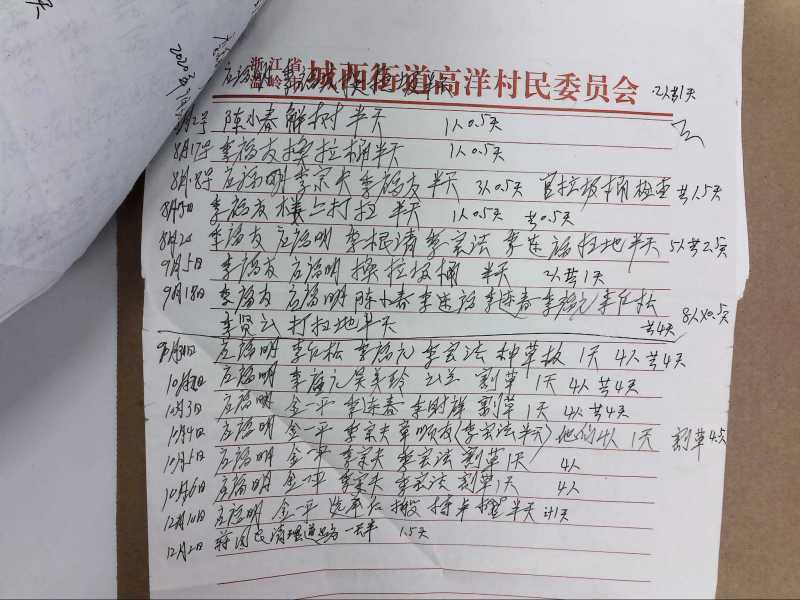 2020年
浙江省
温岭市 城西街道高洋村民委员会
2人共1天
陈小春 解树 半天 1人0.5天
8月17号 李福友 换垃桶半天 1人0.5天
8月18号 应福明 李宗夫 李福友 半天 3人0.5天 官垃圾桶检查 共1.5天
李福友 楼上打扫 半天 1人0.5天 共0.5天
李福友 应福明 李根清 李宗法 李连福 扫地半天 5人共2.5天
9月5日 李福友 应福明 换垃圾桶 半天 2人共1天
9月18日 李福友 应福明 陈小春 李连福 李连春 李福元 李红松 8人×0.5天
李贤云 打扫地半天 共4天
应福明 李红松 李福元 李宗法 种草板 1天 4人共4天
应福明 李福元 吴美玲 割草 1天 4人共4天
10月3日 应福明 金一平 李连春 割草 1天 4人共4天
10月4日 应福明 金一平 李宗夫 (李宗法半天) 他们4人 1天 割草4.5天
10月5日 应福明 金一平 李宗夫 李宗法 割草1天 4人
10月6日 应福明 金一平 李宗夫 李宗法 割草1天 4人
12月10日 应福明 金一平 搬 半天 计1天
12月2日 清理道路 一天半 1.5天